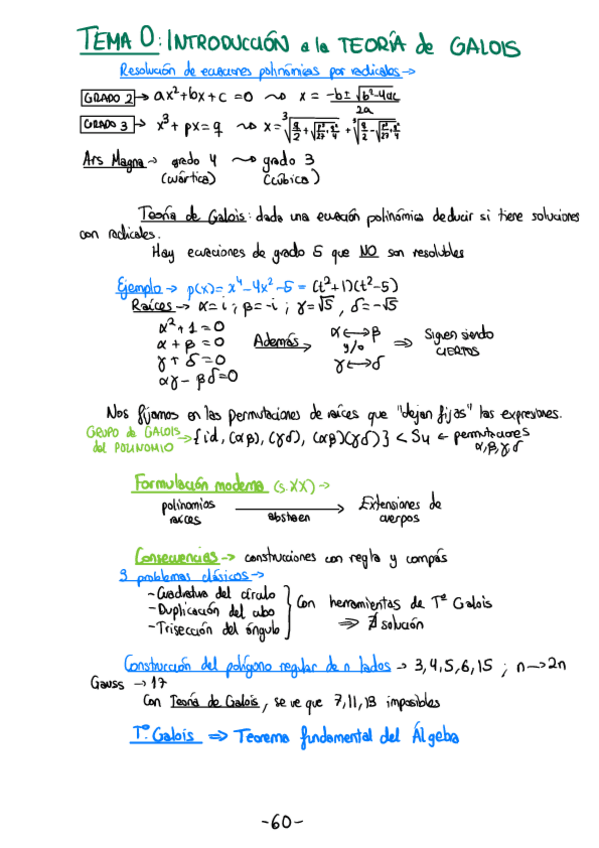 TEMA 0: INTRODUCCIÓN a la TEORÍA de GALOIS
Resolución de ecuaciones polinómicas por radicales →
GRADO 2 → ax²+bx+c=0 ⇝ x = (-b±√(b²-4ac))/2a
GRADO 3 → x³+px=q ⇝ x = ∛(q/2+√(p³/27+q²/4)) + ∛(q/2-√(p³/27+q²/4))
Ars Magna → grado 4 ⇝ grado 3
(cuártica) (cúbica)
Teoría de Galois: dada una ecuación polinómica deducir si tiene soluciones
con radicales.
Hay ecuaciones de grado 5 que NO son resolubles
Ejemplo → p(x)= x⁴-4x²-5 = (t²+1)(t²-5)
Raíces → α=i ; β=-i ; γ=√5 , δ=-√5
α²+1=0
α+β=0
γ+δ=0
αγ-βδ=0
Además α↔β
y/o
γ↔δ
⇒ Siguen siendo
CIERTOS
Nos fijamos en las permutaciones de raíces que "dejan fijas" las expresiones.
GRUPO de GALOIS
del POLINOMIO
→ {id, (αβ), (γδ), (αβ)(γδ)} < S₄ ← permutaciones
α,β,γ,δ
Formulación moderna (s.XX) →
polinomios
raíces
abstraen
Extensiones de
cuerpos
Consecuencias → construcciones con regla y compás
3 problemas clásicos →
-Cuadratura del círculo
-Duplicación del cubo
-Trisección del ángulo
Con herramientas de Tª Galois
⇒ ∄ solución
Construcción del polígono regular de n lados → 3,4,5,6,15 ; n→2n
Gauss → 17
Con Teoría de Galois, se ve que 7,11,13 imposibles
Tª Galois ⇒ Teorema fundamental del Álgebra
-60-